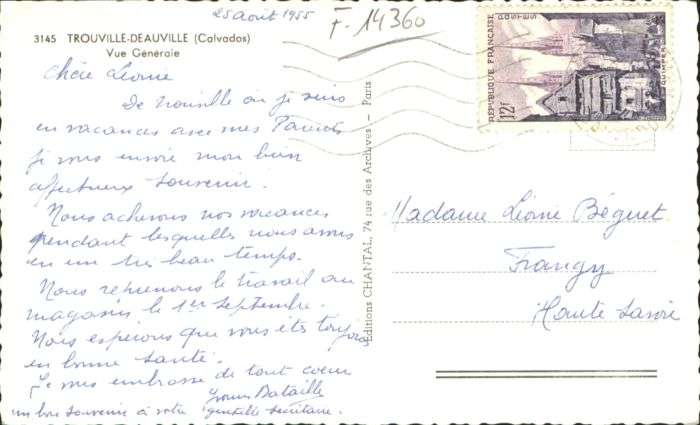 25 août 1955
F-14360
3145 TROUVILLE-DEAUVILLE (Calvados)
Vue Générale
Chère Léonie
De Trouville où je suis
en vacances avec mes Parents
je vous envoie mon bien
affectueux souvenir.
Nous achevons nos vacances
pendant lesquelles nous avons
eu un très beau temps.
Nous reprenons le travail au
magasin le 1er septembre.
Nous espérons que vous êtes toujours
en bonne santé.
Je vous embrasse de tout coeur
Bataille
un bon souvenir à votre gentille secrétaire.
Editions CHANTAL, 74 rue des Archives - Paris
REPUBLIQUE FRANÇAISE
POSTES
QUIMPER
12f
Madame Léonie Béguet
Frangy
Haute Savoie